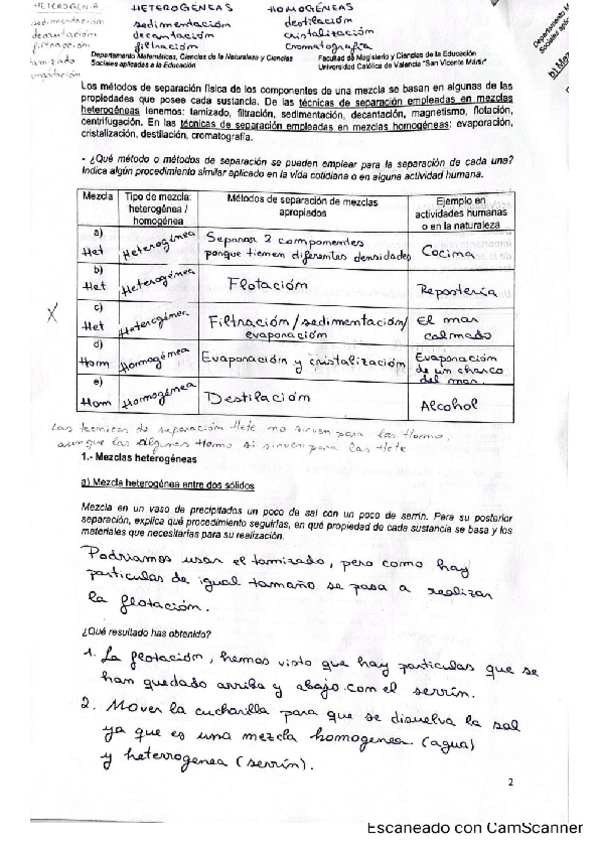 HETEROGEN.A
sedimentación
decantación
filtración
tamizado
HETEROGÉNEAS
sedimentación
decantación
filtración
HOMOGÉNEAS
destilación
cristalización
cromatografía
Departamento Matemáticas, Ciencias de la Naturaleza y Ciencias
Sociales aplicadas a la Educación
Facultad de Magisterio y Ciencias de la Educación
Universidad Católica de Valencia "San Vicente Mártir"
Los métodos de separación física de los componentes de una mezcla se basan en algunas de las
propiedades que posee cada sustancia. De las técnicas de separación empleadas en mezclas
heterogéneas tenemos: tamizado, filtración, sedimentación, decantación, magnetismo, flotación,
centrifugación. En las técnicas de separación empleadas en mezclas homogéneas: evaporación,
cristalización, destilación, cromatografía.
- ¿Qué método o métodos de separación se pueden emplear para la separación de cada una?
Indica algún procedimiento similar aplicado en la vida cotidiana o en alguna actividad humana.
Mezcla
Tipo de mezcla:
heterogénea /
homogénea
Métodos de separación de mezclas
apropiados
Ejemplo en
actividades humanas
o en la naturaleza
a)
Het
Heterogénea
Separar 2 componentes
porque tienen diferentes densidades
Cocina
b)
Het
Heterogénea
Flotación
Repostería
X
c)
Het
Heterogénea
Filtración/sedimentación/
evaporación
El mar
calmado
d)
Hom
Hormogénea
Evaporación y cristalización
Evaporación
de un charco
del mar
e)
Hom
Hormogénea
Destilación
Alcohol
Las técnicas de separación Hete no sirven para las Homo,
aunque las algunas Homo si sirven para las Hete
1.- Mezclas heterogéneas
a) Mezcla heterogénea entre dos sólidos
Mezcla en un vaso de precipitados un poco de sal con un poco de serrín. Para su posterior
separación, explica qué procedimiento seguirías, en qué propiedad de cada sustancia se basa y los
materiales que necesitarías para su realización.
Podríamos usar el tamizado, pero como hay
partículas de igual tamaño se pasa a realizar
la flotación.
¿Qué resultado has obtenido?
1. La flotación, hemos visto que hay partículas que se
han quedado arriba y abajo con el serrín.
2. Mover la cucharilla para que se disuelva la sal
ya que es una mezcla homogenea (agua)
y heterrogenea (serrín).
2
Escaneado con CamScanner